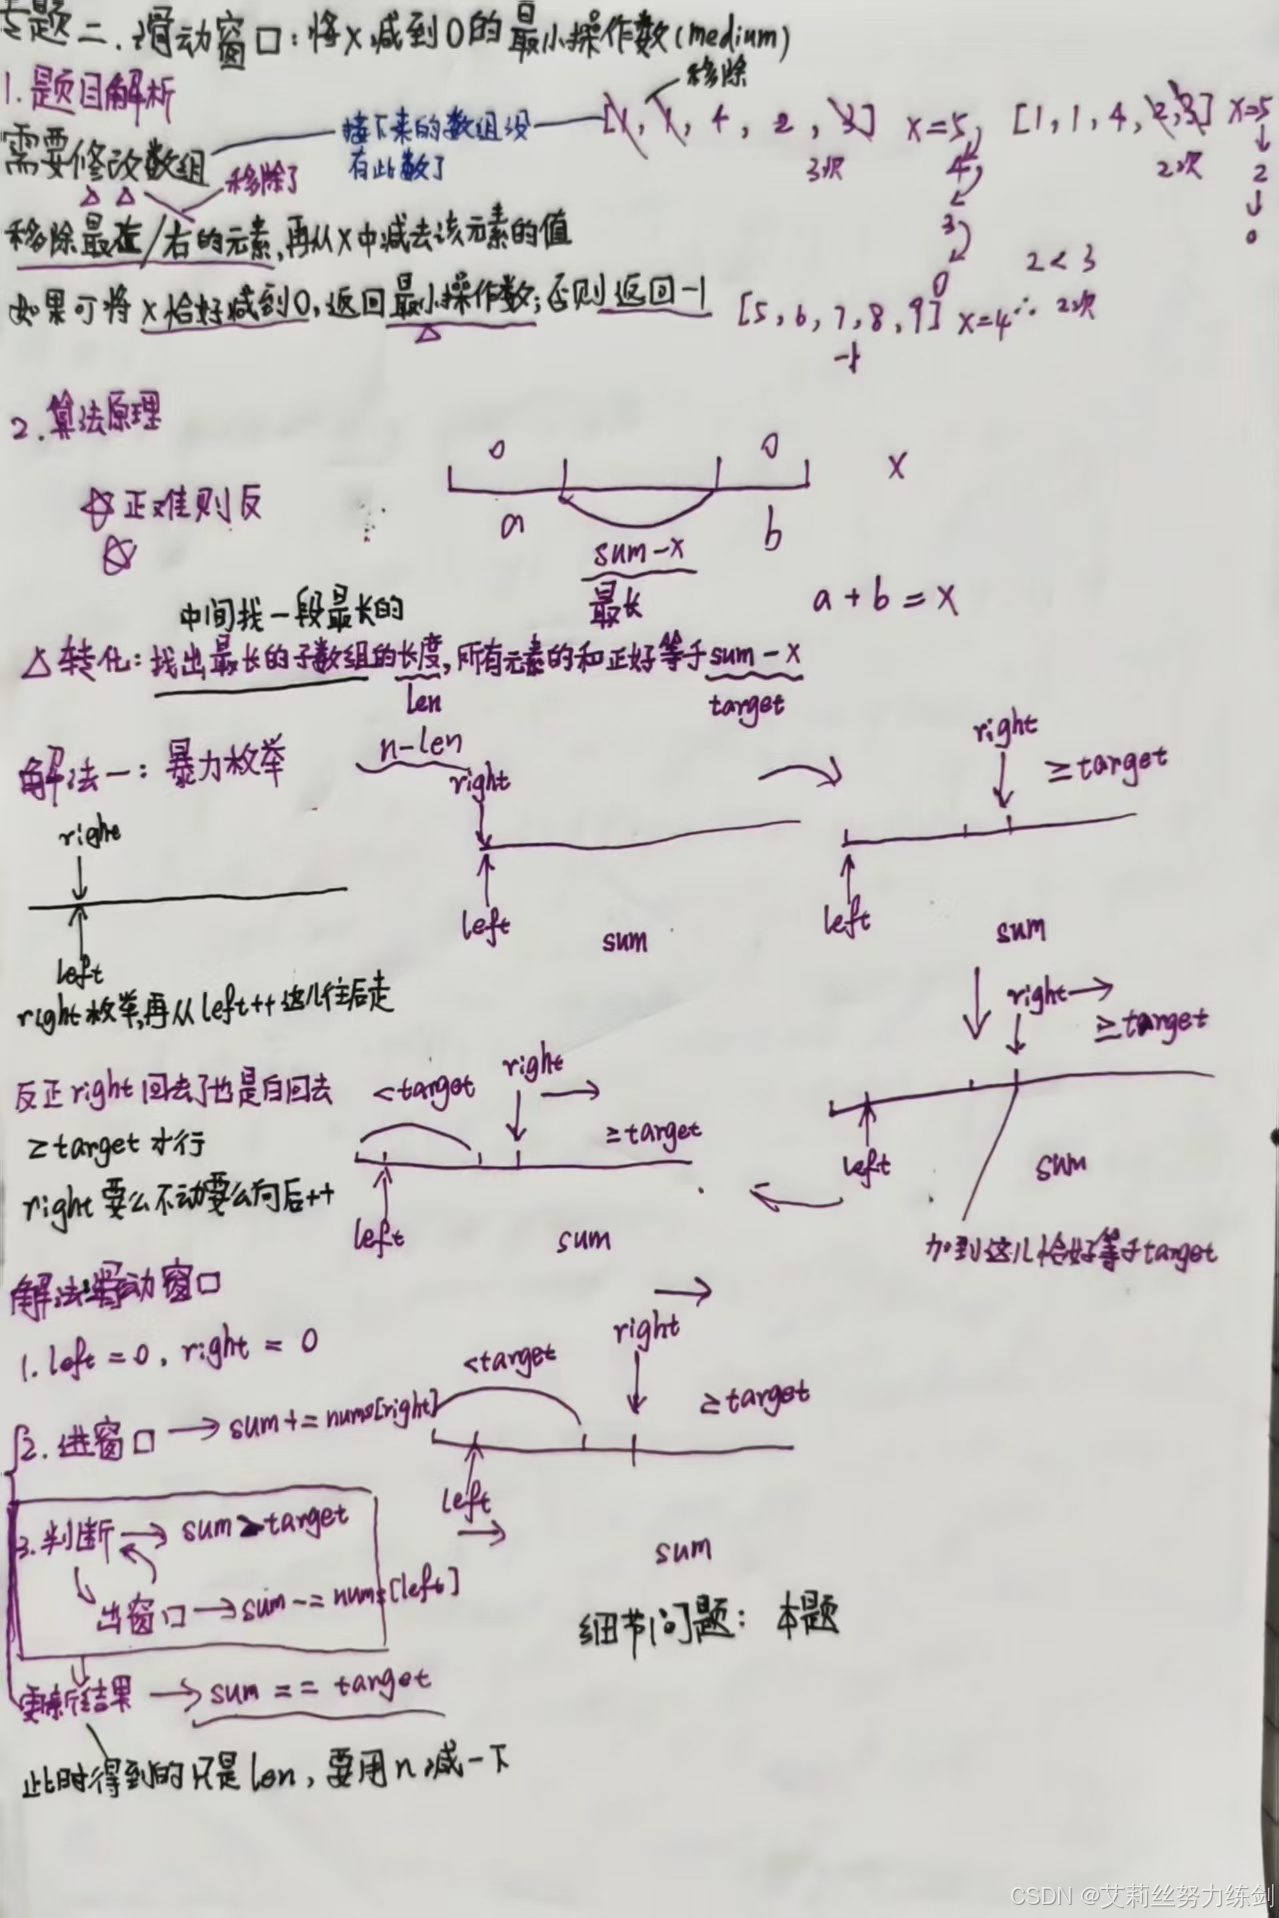 专题二.滑动窗口:将X减到0的最小操作数(medium)
1.题目解析
移除
需要修改数组
接下来的数组没
有此数了
[1, 1, 4, 2, 3] x=5
[1,1,4,2,3] x=5
移除了
3次
4
2次
2
移除最左/右的元素,再从x中减去该元素的值
3
0
2<3
0
如果可将x恰好减到0,返回最小操作数;否则返回-1
[5,6,7,8,9] x=4
∴ 2次
-1
2.算法原理
0
0
x
正难则反
a
b
sum-x
中间找一段最长的
最长
a+b=x
△转化:找出最长的子数组的长度,所有元素的和正好等于sum-x
len
target
解法一:暴力枚举
n-len
right
right
≥target
right
left
left
left
sum
sum
right枚举,再从left++这儿往后走
right
≥target
反正right回去了也是白回去
<target
right
≥target才行
≥target
left
sum
right要么不动要么向后++
left
sum
加到这儿恰好等于target
解法:滑动窗口
1.left=0,right=0
right
<target
≥target
2.进窗口→sum+=nums[right]
left
3.判断→sum>target
sum
出窗口→sum-=nums[left]
细节问题:本题
更新结果→sum==target
此时得到的只是len,要用n减一下
CSDN @艾莉丝努力练剑